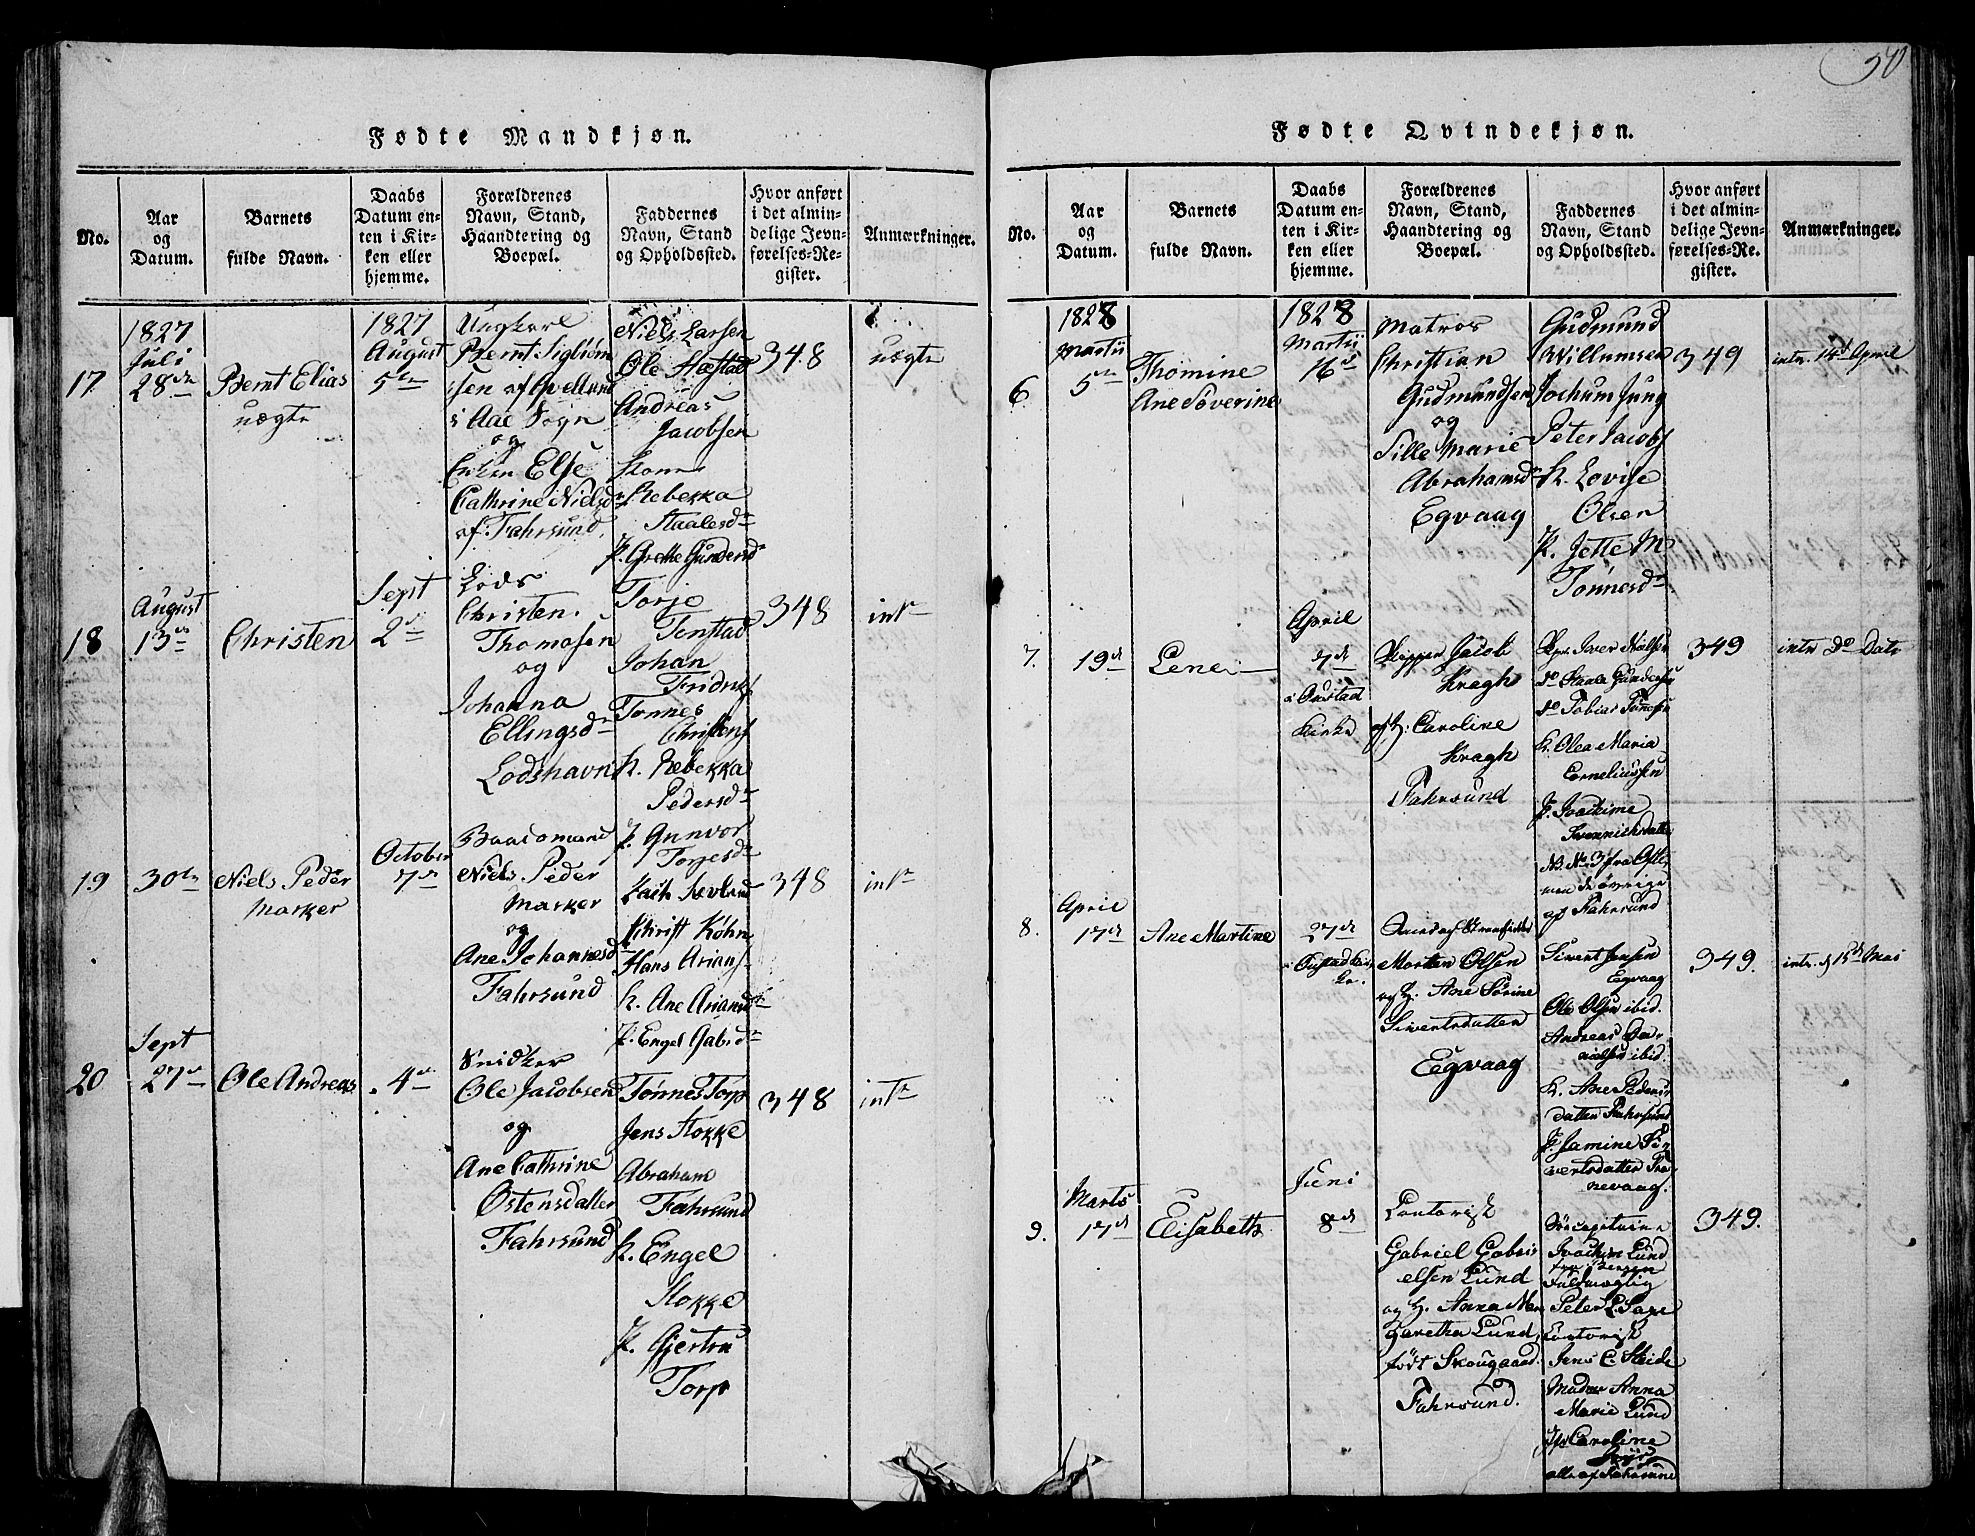 50
Fødte Mandkjøn.
No.
Aar
og
Datum.
Barnets
fulde Navn.
Daabs
Datum en-
ten i Kir-
ken eller
hjemme.
Forældrenes
Navn, Stand,
Haandtering og
Boepæl.
Faddernes
Navn, Stand
og Opholdssted.
Hvor anført
i det almin-
delige Jevn-
førelses-Re-
gister.
Anmærkninger.
17
1827
Juli
28de
Bernt Elias
uægte
1827
August
5te
Ungkarl
Bernt Sigbiørn
sen af
i Aae Sogn
og
Else
Cathrine Nielsd
af Fahrsund
Niels Larsen
Ole
Andreas
Jacobsen
Rebekka
Staalesdr
P. Grethe Gundersdr
348
uægte
18
August
13de
Christen
Sept
2d
Lods
Christen
Thomasen
og
Johanna
Ellingsdr
Lodshavn
Torje
Tomstad
Johan
Fridriks
Tønnes
Christens
K. Rebekka
Pedersdr
P. Gunvor
Torjesdr
348
intr
19
30te
Niels Peder
Marker
October
7de
Baadsmand
Niels Peder
Marker
og
Ane Johannesd
Fahrsund
Christ Kohn
Hans Arians
K. Ane Ariansdr
P. Engel Gabrdr
348
intr
20
Sept
27de
Ole Andreas
4de
Snidker
Ole Jacobsen
og
Ane Cathrine
Ostensdatter
Fahrsund
Tønnes Torp
Jens Stokke
Abraham
Fahrsund
K. Engel
Stokke
P. Gjertru
Torp
348
intr
Fødte Qvindekjøn.
No.
Aar
og
Datum.
Barnets
fulde Navn.
Daabs
Datum en-
ten i Kir-
ken eller
hjemme.
Forældrenes
Navn, Stand,
Haandtering og
Boepæl.
Faddernes
Navn, Stand
og Opholdssted.
Hvor anført
i det almin-
delige Jevn-
førelses-Re-
gister.
Anmærkninger.
6
1828
Martii
5te
Thomine
Ane Søverine
1828
Martii
16d
Matros
Christian
Gudmundsen
og
Sille Marie
Abrahamsdr
Egvaag
Gudmund
Willumsen
Jochum Jung
Peter Jacobs
K. Lovise
Olsen
P. Jette M
Tønnesdr
349
intr. 14d April
7.
19d
Lene
April
7de
Kirke
Skipper Jacob
Kragh
og H. Caroline
Kragh
Fahrsund
Iver Nielsen
do Staale Gundersen
do Tobias Tønnesen
K. Olea Maria
Corneliussen
P. Joachime
NB. No. 3 fra
de øvrige
af Fahrsund
349
intr. do Dato
8.
April
17de
Ane Martine
27de
Morten Olsen
og H. Ane Sørine
Sivertsdatter
Egvaag
Sivert Jensen
Egvaag
Ole Olsen ibid.
Andreas Da-
nielsen ibid.
K. Ane Peders
datter Fahrsund
P. Jamine Si-
vertsdatter
349.
intr. d 15d Mai
9.
Marts
17de
Elisabeth
Juni
8de
Contorist
Gabriel Gabri
elsen Lund
og H. Anna Mar
garetha Lund
født Skougaard.
Fahrsund.
Joachim Lund
fra Bergen
Fuldmægtig
Peter
Contorist
Jens C.
Madam Anna
Marie Lund
Jfr Caroline
alle af Fahrsund
349.